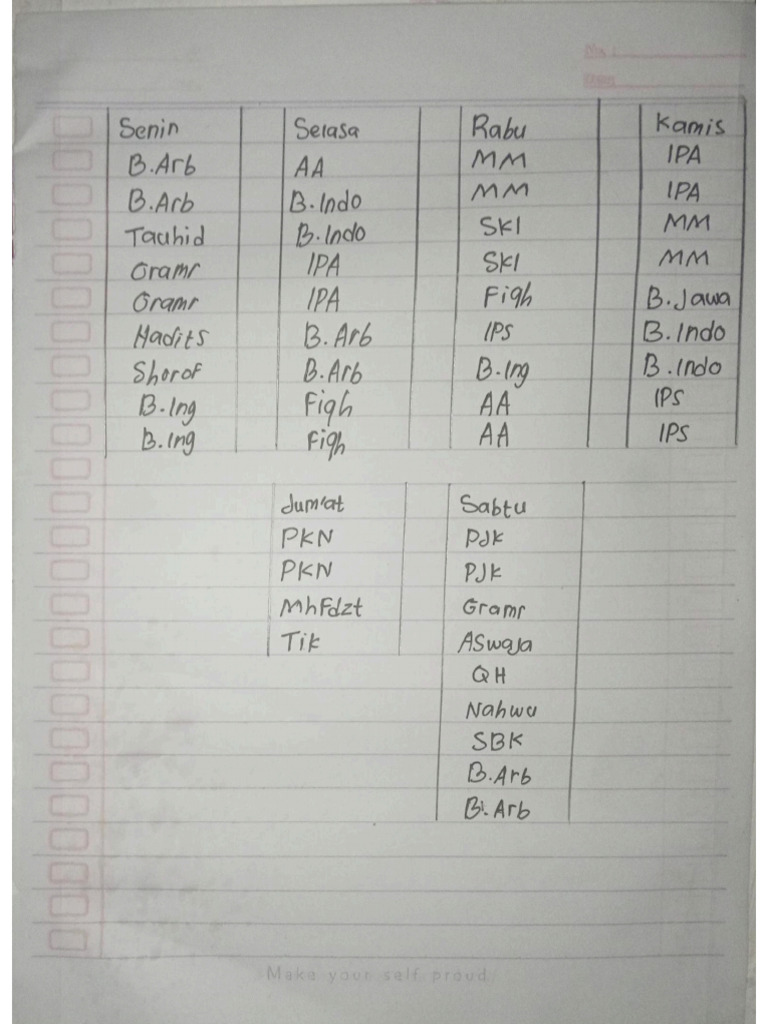 No :
Date
Senin Selasa Rabu Kamis
B.Arb AA MM IPA
B.Arb B.Indo MM IPA
Tauhid B.Indo SKI MM
Gramr IPA SKI MM
Gramr IPA Fiqh B.Jawa
Hadits B.Arb IPS B.Indo
Shorof B.Arb B.Ing B.Indo
B.Ing Fiqh AA IPS
B.Ing Fiqh AA IPS
Jum'at Sabtu
PKN PJK
PKN PJK
MhFdzt Gramr
Tik ASwaja
QH
Nahwu
SBK
B.Arb
B.Arb
Make your self proud.